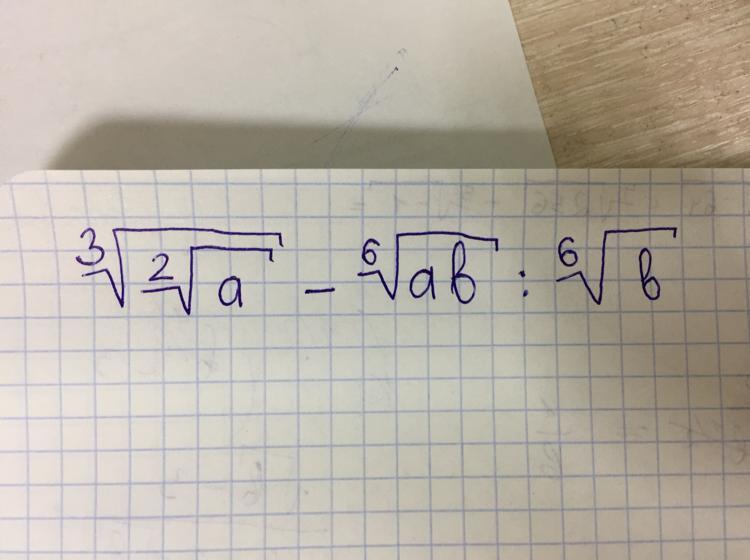 ∛(²√a) − ⁶√(ab) : ⁶√b